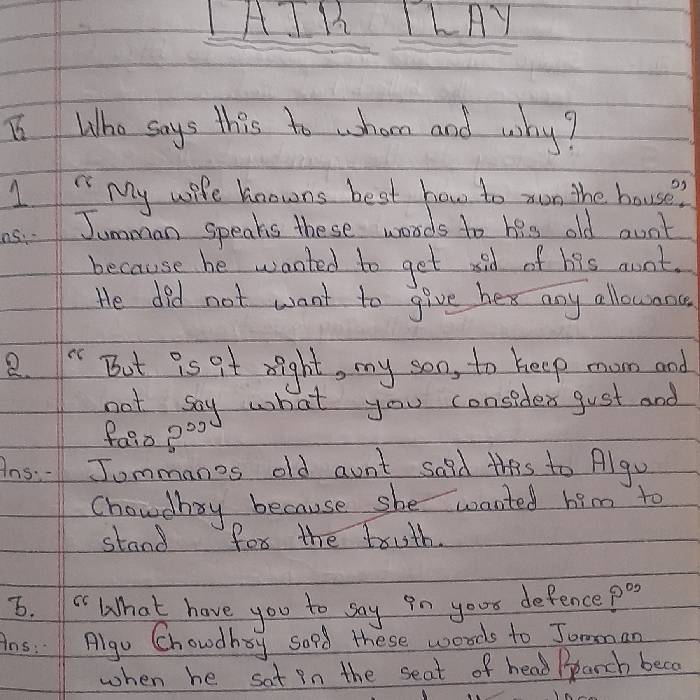 FAIR PLAY
B Who says this to whom and why?
1 "My wife knowns best how to run the house".
ns:- Jumman speaks these words to his old aunt
because he wanted to get rid of his aunt.
He did not want to give her any allowance
2. "But is it right, my son, to keep mum and
not say what you consider just and
fair?"
Ans:- Jumman's old aunt said this to Algu
Chowdhry because she wanted him to
stand for the truth.
3. "What have you to say in your defence?"
Ans:- Algu Chowdhry said these words to Jumman
when he sat in the seat of head Panch beca